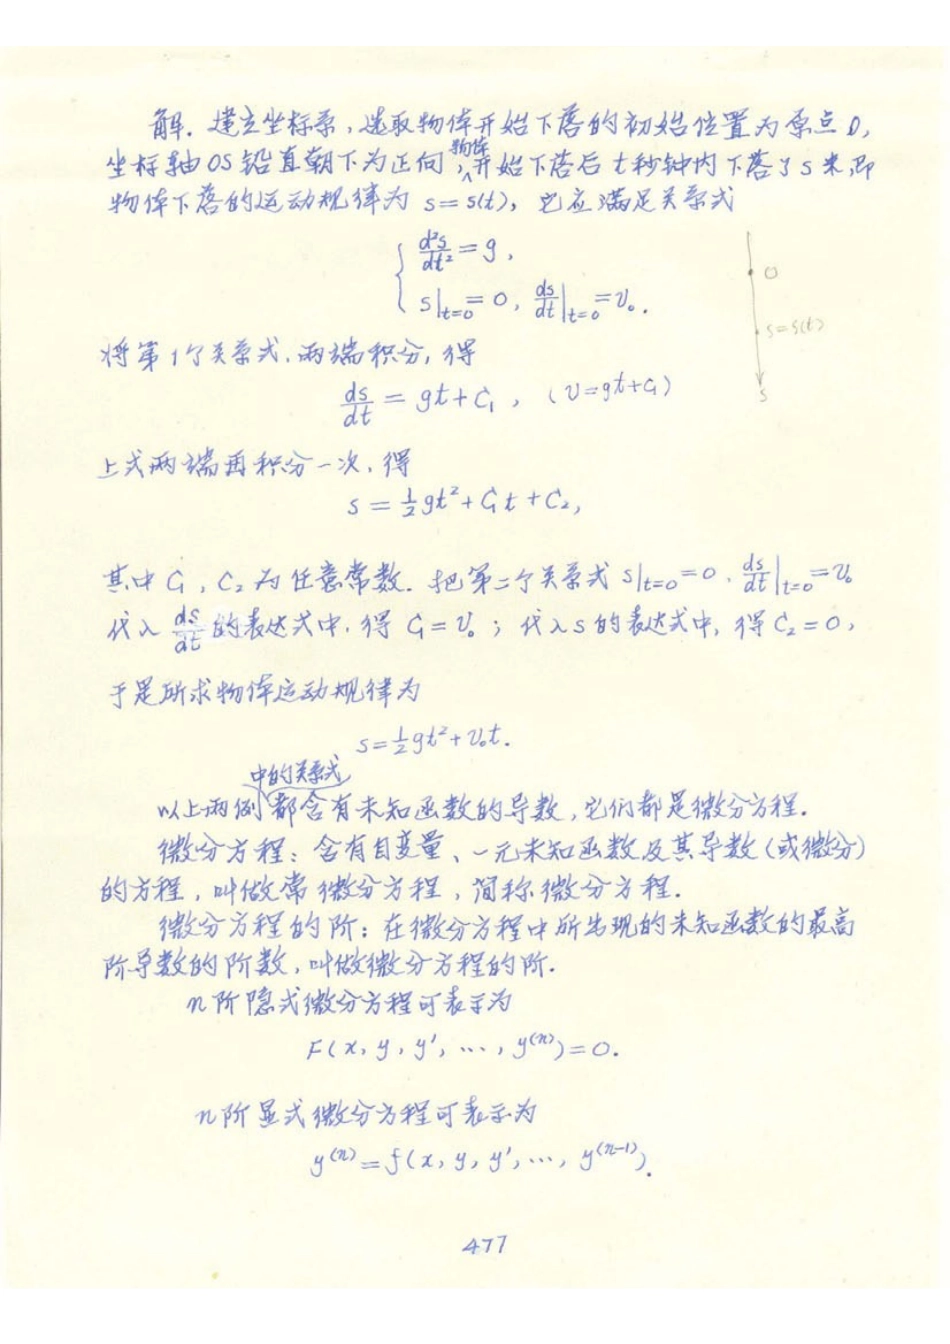 解. 建立坐标系,选取物体开始下落的初始位置为原点O,
坐标轴OS铅直朝下为正向,物体开始下落后t秒钟内下落了s米,即
物体下落的运动规律为 s=s(t), 它应满足关系式
{ d²s/dt² = g,
s|t=0 = 0, ds/dt|t=0 = v₀.
O
s=s(t)
s
将第1个关系式.两端积分,得
ds/dt = gt+C₁, (v=gt+C₁)
上式两端再积分一次.得
s = ½gt²+C₁t+C₂,
其中C₁, C₂为任意常数. 把第二个关系式 s|t=0=0. ds/dt|t=0=v₀
代入 ds/dt 的表达式中.得 C₁=v₀; 代入s的表达式中,得C₂=0,
于是所求物体运动规律为
s=½gt²+v₀t.
以上两例中的关系式都含有未知函数的导数,它们都是微分方程.
微分方程:含有自变量、一元未知函数及其导数(或微分)
的方程,叫做常微分方程,简称微分方程.
微分方程的阶:在微分方程中所出现的未知函数的最高
阶导数的阶数,叫做微分方程的阶.
n阶隐式微分方程可表示为
F(x, y, y', ..., y⁽ⁿ⁾)=0.
n阶显式微分方程可表示为
y⁽ⁿ⁾=f(x, y, y', ..., y⁽ⁿ⁻¹⁾).
477